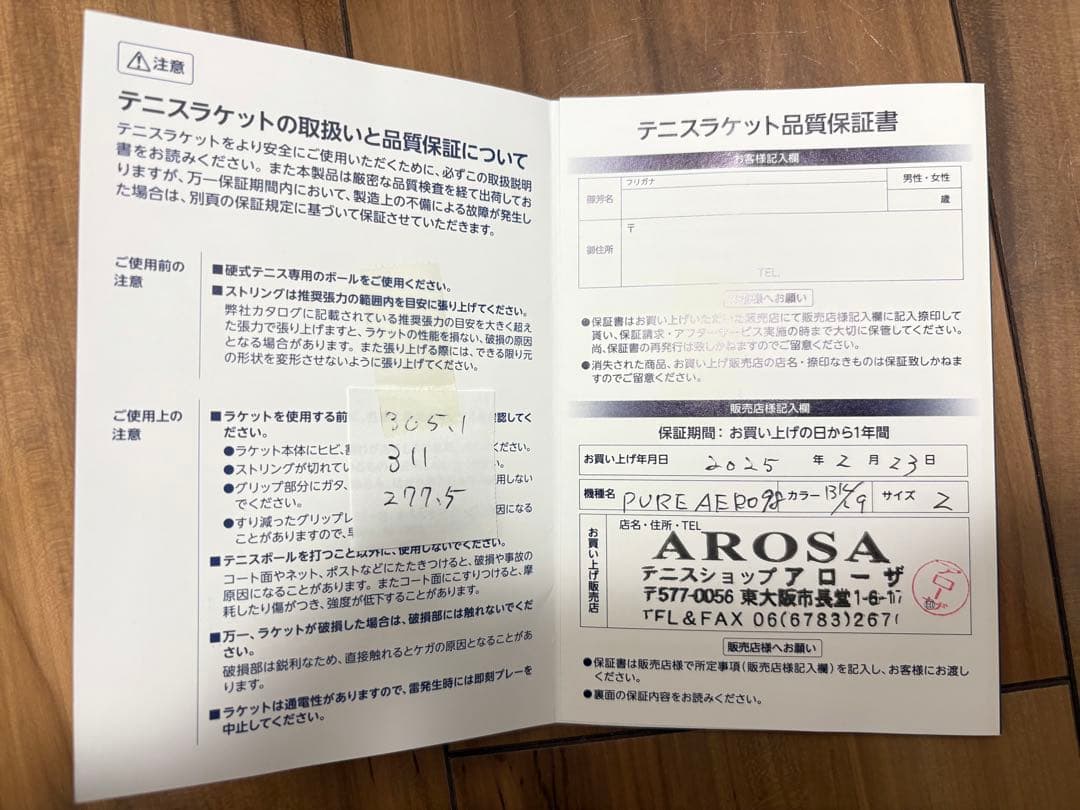 注意
テニスラケットの取扱いと品質保証について
テニスラケットをより安全にご使用いただくために、必ずこの取扱説明
書をお読みください。また本製品は厳密な品質検査を経て出荷してお
りますが、万一保証期間内において、製造上の不備による故障が発生し
た場合は、別頁の保証規定に基づいて保証させていただきます。
ご使用前の
注意
■硬式テニス専用のボールをご使用ください。
■ストリングは推奨張力の範囲内を目安に張り上げてください。
弊社カタログに記載されている推奨張力の目安を大きく超え
た張力で張り上げますと、ラケットの性能を損ない、破損の原因
となる場合があります。また張り上げる際には、できる限り元
の形状を変形させないように張り上げてください。
ご使用上の
注意
■ラケットを使用する前 確認してく
ださい。
●ラケット本体にヒビ、 ください。
●ストリングが切れている
●グリップ部分にガタ、 用しない
でください。
●すり減ったグリップ 因になる
ことがありますので、
305.1
311
277.5
■テニスボールを打つこと以外に、使用しないでください。
コート面やネット、ポストなどにたたきつけると、破損や事故の
原因になることがあります。またコート面にこすりつけると、摩
耗したり傷がつき、強度が低下することがあります。
■万一、ラケットが破損した場合は、破損部には触れないでくだ
さい。
破損部は鋭利なため、直接触れるとケガの原因となることがあ
ります。
■ラケットは通電性がありますので、雷発生時には即刻プレーを
中止してください。
テニスラケット品質保証書
お客様記入欄
フリガナ
御芳名
男性・女性
歳
御住所
〒
TEL.
へお願い
●保証書はお買い上げいただいた販売店にて販売店様記入欄に記入捺印して
貰い、保証請求・アフターサービス実施の時まで大切に保管してください。
尚、保証書の再発行は致しかねますのでご留意ください。
●消失された商品、お買い上げ販売店の店名・捺印なきものは保証致しかねま
すのでご留意ください。
販売店様記入欄
保証期間：お買い上げの日から1年間
お買い上げ年月日 2025 年 2 月 23 日
機種名 PURE AERO98 カラー サイズ 2
お買い上げ販売店
店名・住所・TEL
AROSA
テニスショップ アローザ
〒577-0056 東大阪市長堂1-6-17
TEL&FAX 06(6783)2671
販売店様へお願い
●保証書は販売店様で所定事項(販売店様記入欄)を記入し、お客様にお渡し
ください。
●裏面の保証内容をお読みください。